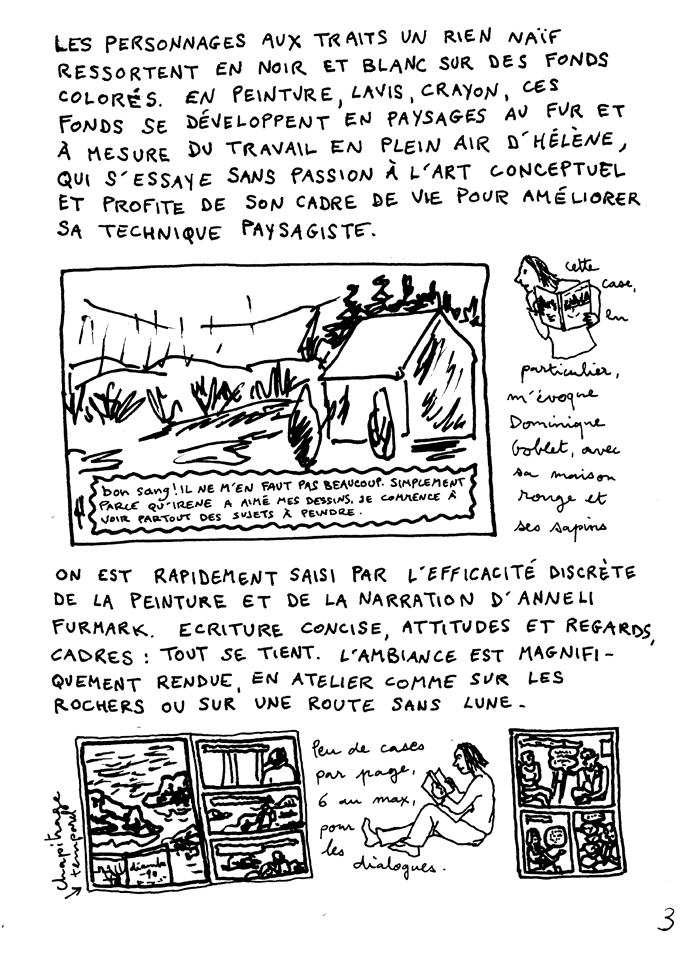 LES PERSONNAGES AUX TRAITS UN RIEN NAÏF
RESSORTENT EN NOIR ET BLANC SUR DES FONDS
COLORÉS. EN PEINTURE, LAVIS, CRAYON, CES
FONDS SE DÉVELOPPENT EN PAYSAGES AU FUR ET
À MESURE DU TRAVAIL EN PLEIN AIR D'HÉLÈNE,
QUI S'ESSAYE SANS PASSION À L'ART CONCEPTUEL
ET PROFITE DE SON CADRE DE VIE POUR AMÉLIORER
SA TECHNIQUE PAYSAGISTE.
cette
case,
en
particulier,
m'évoque
Dominique
Goblet, avec
sa maison
rouge et
ses sapins
bon sang! IL NE M'EN FAUT PAS BEAUCOUP. SIMPLEMENT
PARCE QU'IRENE A AIMÉ MES DESSINS, JE COMMENCE À
VOIR PARTOUT DES SUJETS À PEINDRE.
ON EST RAPIDEMENT SAISI PAR L'EFFICACITÉ DISCRÈTE
DE LA PEINTURE ET DE LA NARRATION D'ANNELI
FURMARK. ECRITURE CONCISE, ATTITUDES ET REGARDS,
CADRES : TOUT SE TIENT. L'AMBIANCE EST MAGNIFI-
QUEMENT RENDUE, EN ATELIER COMME SUR LES
ROCHERS OU SUR UNE ROUTE SANS LUNE.
chapitrage
temporel
Peu de cases
par page,
6 au max,
pour
les
dialogues.
3